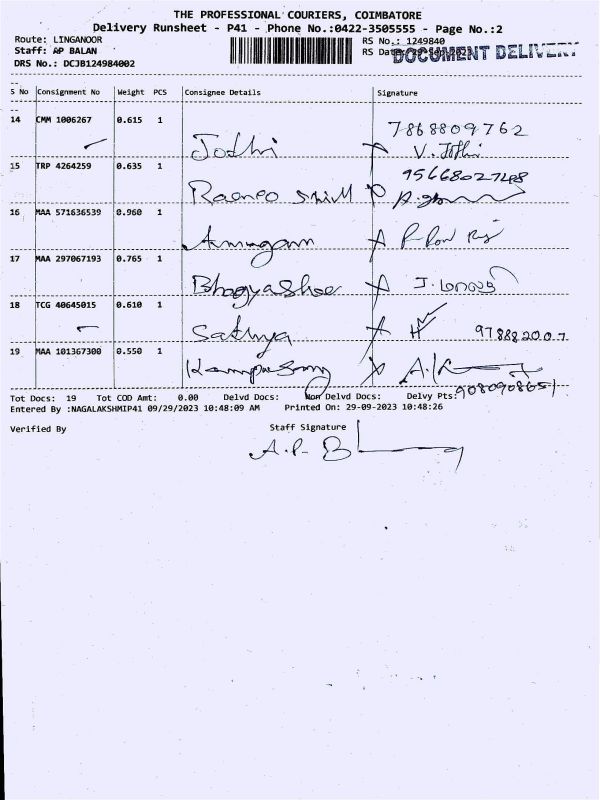 THE PROFESSIONAL COURIERS, COIMBATORE
Delivery Runsheet - P41 - Phone No.:0422-3505555 - Page No.:2
Route: LINGANOOR RS No.: 1249840
Staff: AP BALAN RS Date: DOCUMENT DELIVERY
DRS No.: DCJB124984002
S No Consignment No Weight PCS Consignee Details Signature
14 CMM 1006267 0.615 1 7868809762
Jothi V. Jothi
15 TRP 4264259 0.635 1
16 MAA 571636539 0.960 1
Arumugam
17 MAA 297067193 0.765 1
Bhagyashee J.
18 TCG 40645015 0.610 1
Sathya 978882007
19 MAA 101367300 0.550 1
9080908651
Tot Docs: 19 Tot COD Amt: 0.00 Delvd Docs: Non Delvd Docs: Delvy Pts:
Entered By :NAGALAKSHMIP41 09/29/2023 10:48:09 AM Printed On: 29-09-2023 10:48:26
Verified By Staff Signature
A.P. B